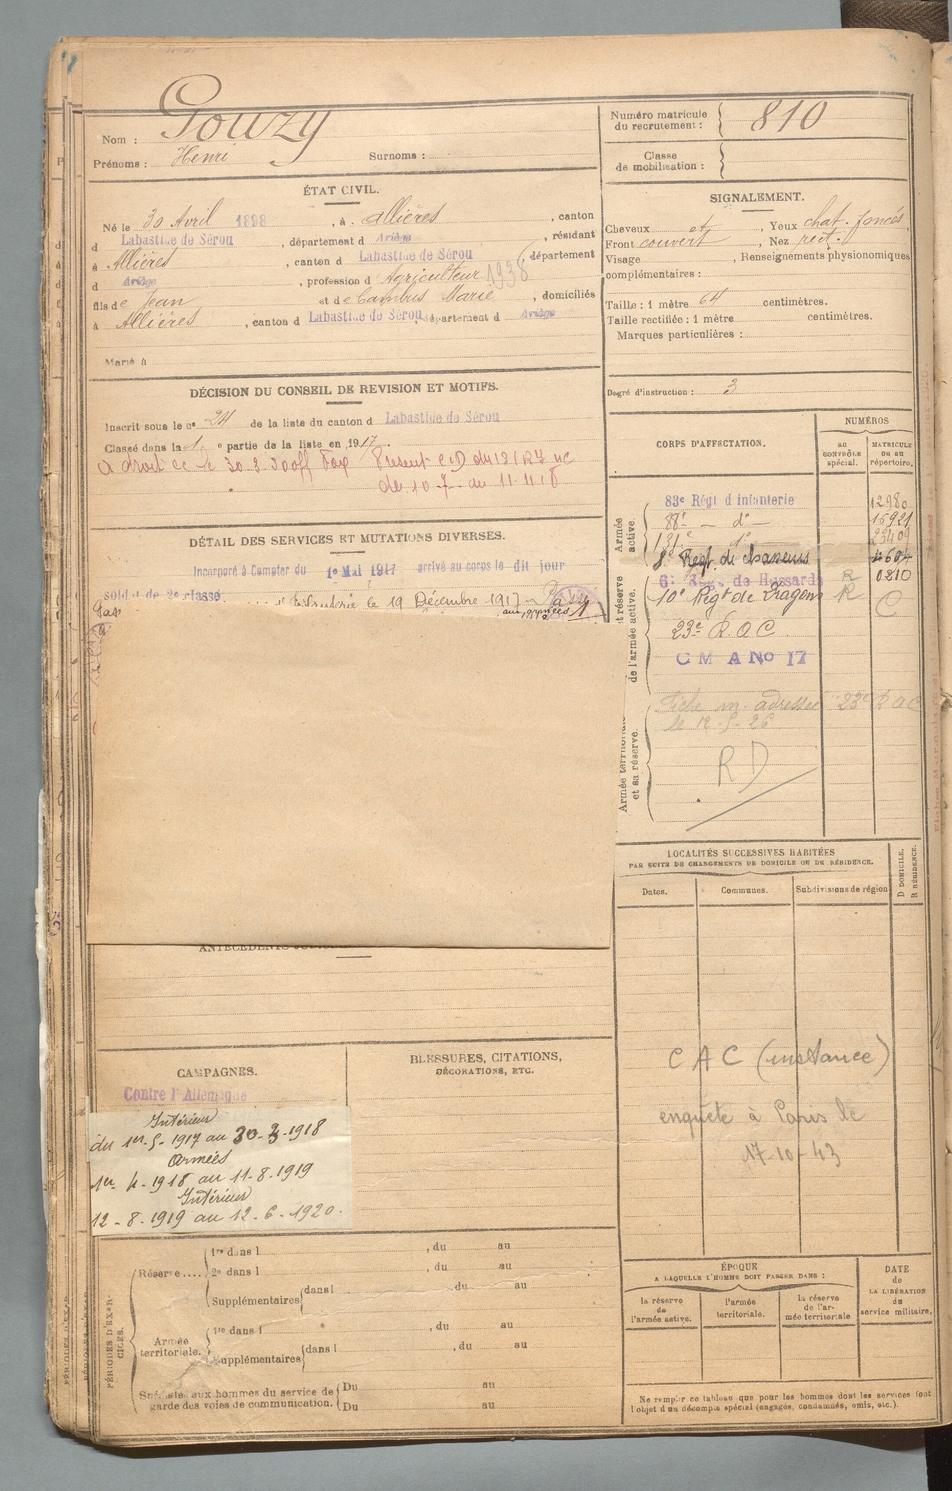 Nom : Gouzy
Prénoms : Henri Surnoms :
ÉTAT CIVIL.
Né le 30 Avril 1898, à Allières, canton
d Labastide de Sérou, département d Ariège, résidant
à Allières, canton d Labastide de Sérou, département
d Ariège, profession d Agriculteur 1938
fils de Jean et de Cambus Marie, domiciliés
à Allières, canton d Labastide de Sérou, département d Ariège
Marié à
DÉCISION DU CONSEIL DE REVISION ET MOTIFS.
Inscrit sous le nº 24 de la liste du canton d Labastide de Sérou
Classé dans la 1. e partie de la liste en 1917.
A droit
Présent
du 10-7- au 11-11-18
DÉTAIL DES SERVICES ET MUTATIONS DIVERSES.
Incorporé à Compter du 1er Mai 1917 arrivé au corps le dit jour
soldat de 2e classe
le 19 Décembre 1917
aux armées
ANTÉCÉDENTS
CAMPAGNES.
Contre l'Allemagne
Intérieur
du 1er-5-1917 au 30-3-1918
Armées
1er 4-1918 au 11-8-1919
Intérieur
12-8-1919 au 12-6-1920.
BLESSURES, CITATIONS,
DÉCORATIONS, ETC.
PÉRIODES D'EXERCICES.
Réserve....
1re dans l , du au
2e dans l , du au
Supplémentaires dans l , du au
Armée territoriale.
1re dans l , du au
Supplémentaires dans l , du au
Spéciales aux hommes du service de garde des voies de communication.
Du au
Du au
Numéro matricule
du recrutement : 810
Classe
de mobilisation :
SIGNALEMENT.
Cheveux et, Yeux chat. foncés,
Front couvert, Nez rect.
Visage , Renseignements physionomiques
complémentaires :
Taille : 1 mètre 64 centimètres.
Taille rectifiée : 1 mètre centimètres.
Marques particulières :
Degré d'instruction : 3
CORPS D'AFFECTATION.
NUMÉROS
au CONTRÔLE spécial.
MATRICULE ou au répertoire.
Armée active.
83e Régt d infanterie 12980
88e - do - 15921
131e do 23409
8e Régt. de chasseurs 4604
et réserve de l'armée active.
6e Régt. de Hussards R 0810
10e Régt de Dragons R C
23e R.A.C.
C M A No 17
Armée territoriale et sa réserve.
Fiche m. adressée 23e R A C
le 12-5-26
R D
LOCALITÉS SUCCESSIVES HABITÉES
PAR SUITE DE CHANGEMENTS DE DOMICILE OU DE RÉSIDENCE.
Dates. Communes. Subdivisions de région
D DOMICILE, R RÉSIDENCE.
C A C (instance)
enquête à Paris le
17-10-43
ÉPOQUE
A LAQUELLE L'HOMME DOIT PASSER DANS :
la réserve de l'armée active.
l'armée territoriale.
la réserve de l'armée territoriale
DATE
de
LA LIBÉRATION
du
service militaire.
Ne remplir ce tableau que pour les hommes dont les services font
l'objet d'un décompte spécial (engagés, condamnés, omis, etc.).